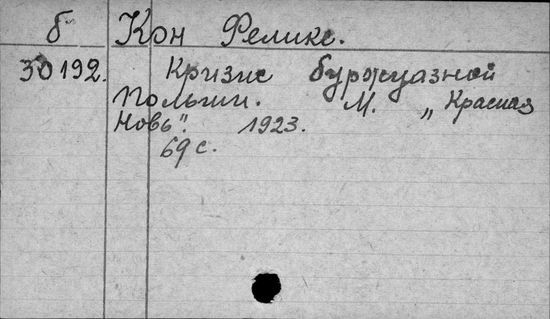 б Кон Феликс.
30192. Кризис буржуазной
Польши. М. „Красная
Новь". 1923.
69 с.